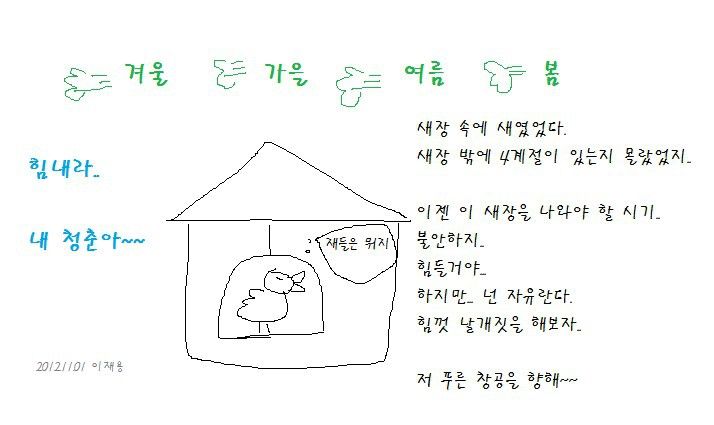 겨울 가을 여름 봄
힘내라..
내 청춘아~~
새장 속에 새였었다.
새장 밖에 4계절이 있는지 몰랐었지..
이젠 이 새장을 나와야 할 시기..
불안하지..
힘들거야..
하지만.. 넌 자유란다.
힘껏 날개짓을 해보자..
저 푸른 창공을 향해~~
쟤들은 뭐지
2012.11.01 이재용